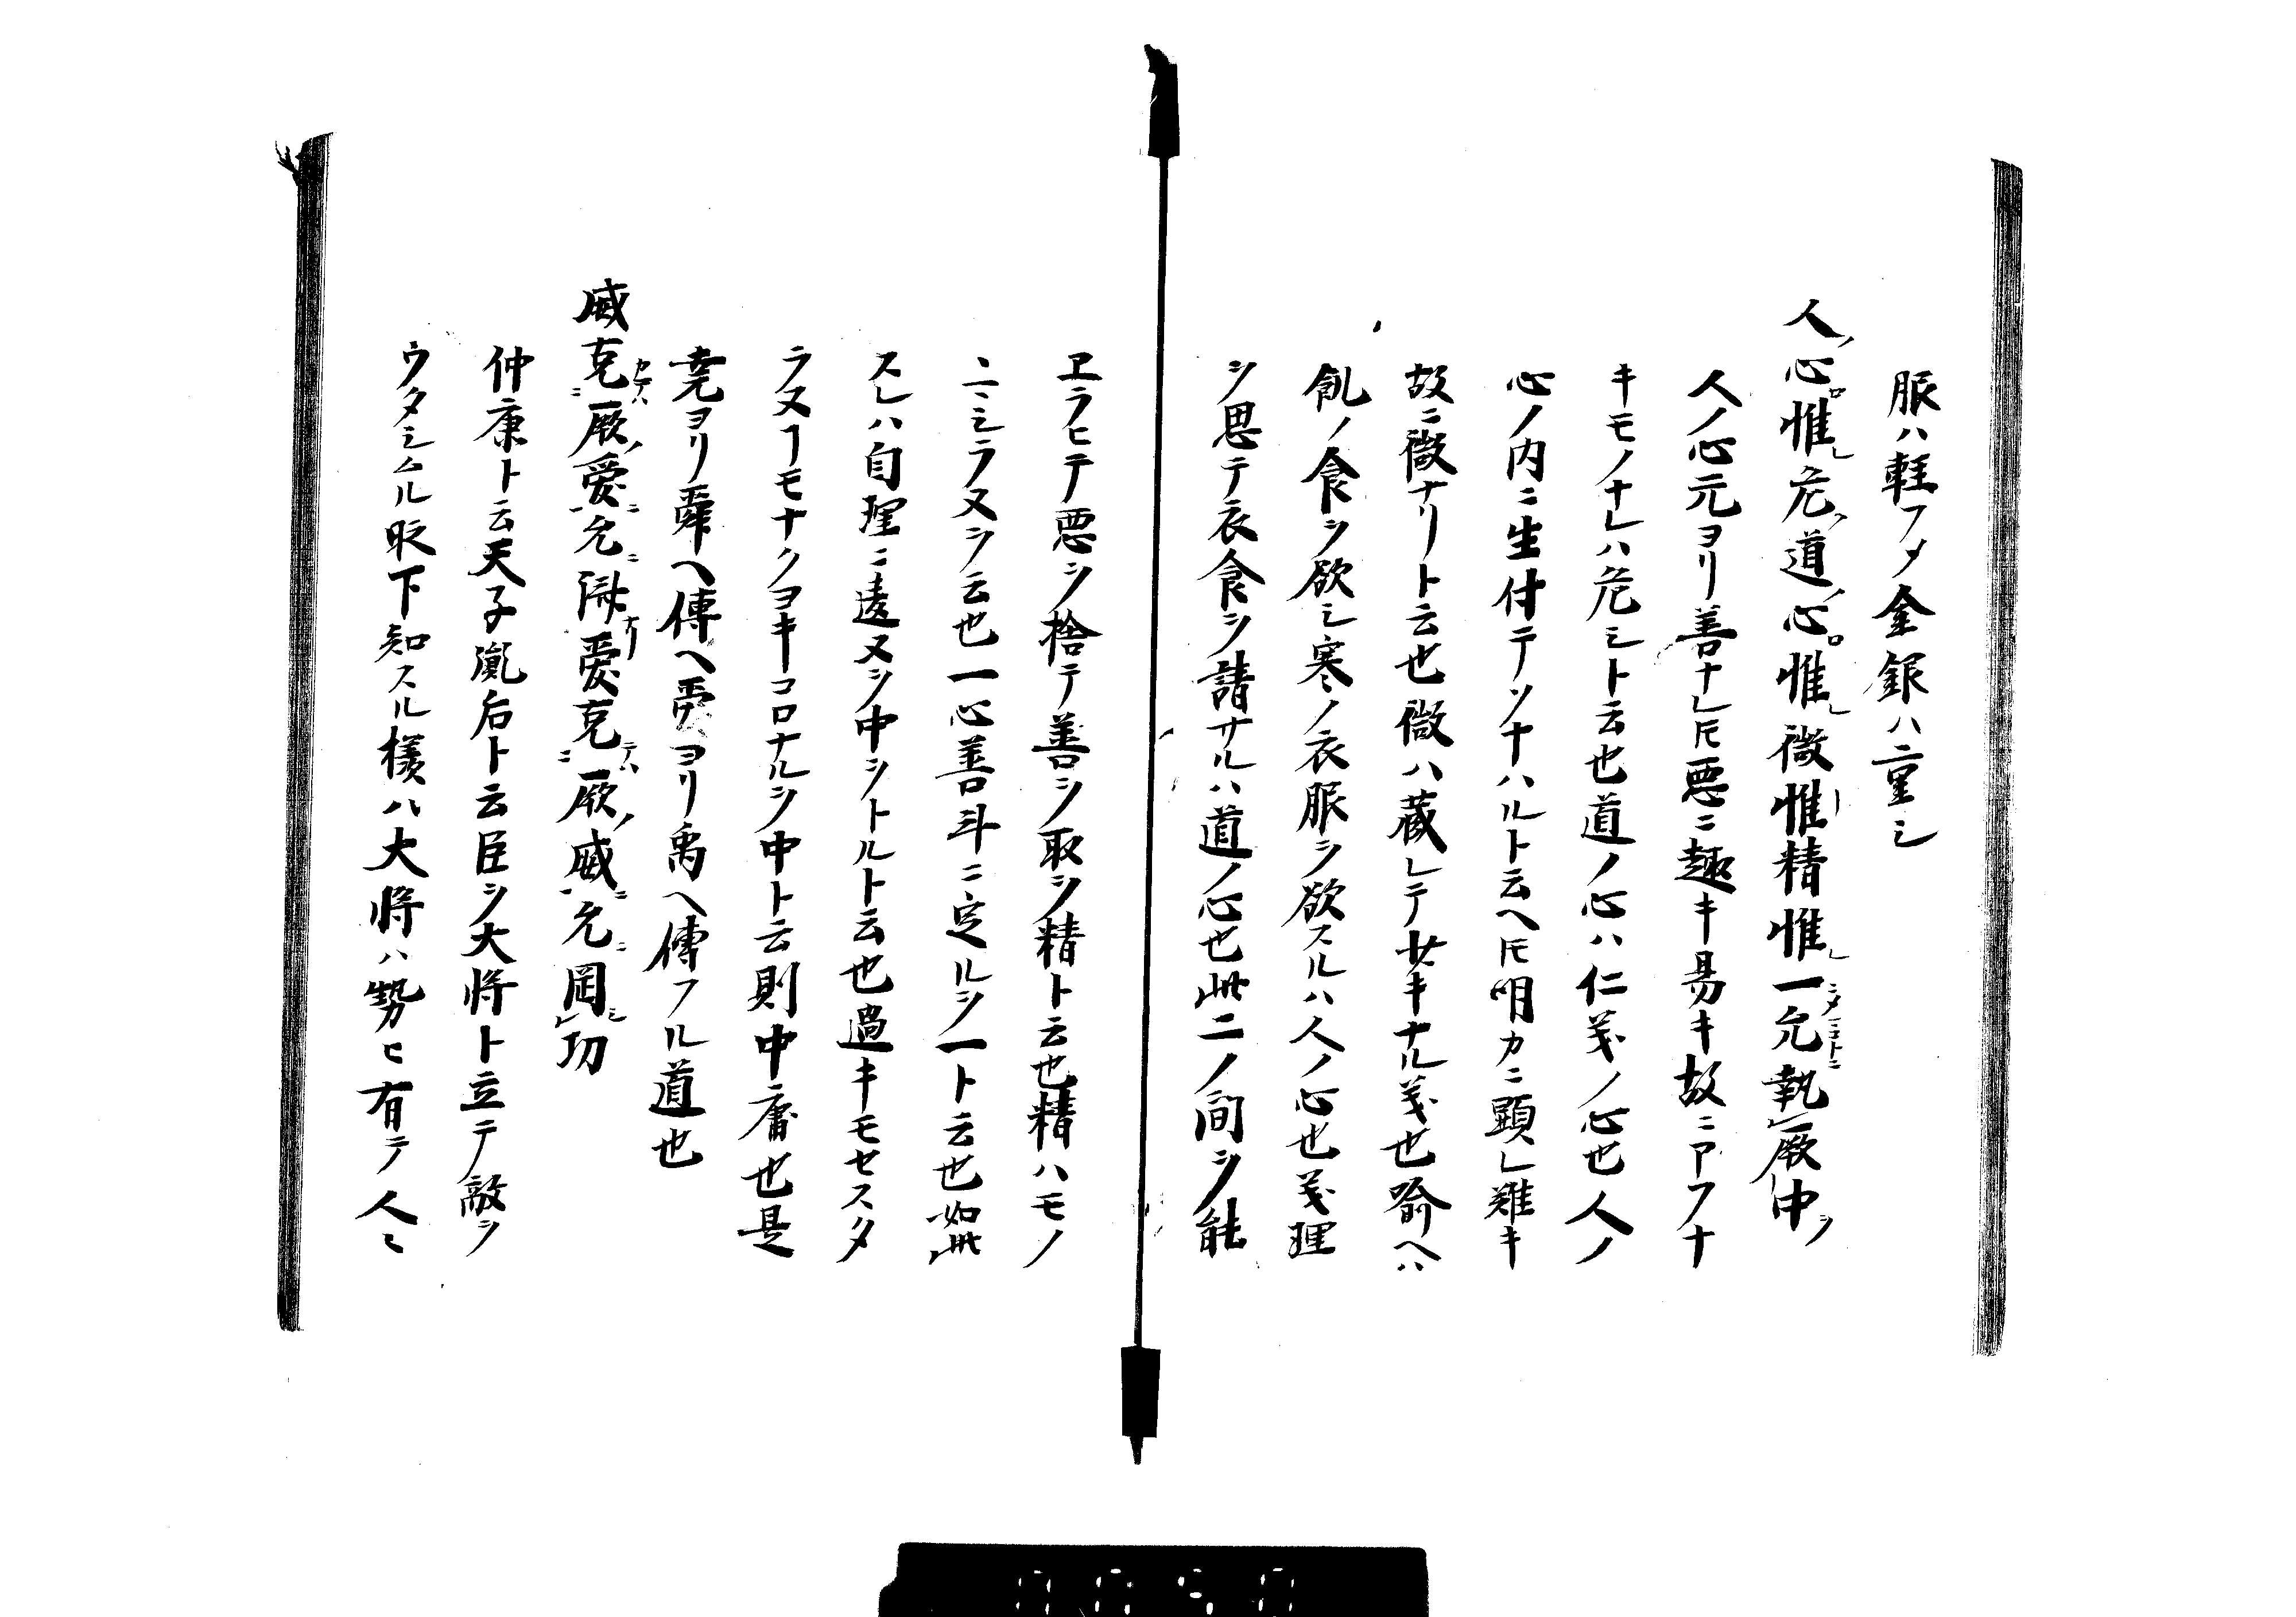 服ハ軽フメ金銀ハ重シ
人ノ心ロ惟レ危フ道ノ心ロ惟レ微惟レ精惟レ一允シメマコトニ執レ厥ノ中ヲ
人ノ心元ヨリ善ナレ𪜈悪ニ趣キ易キ故ニアフナ
キモノナレハ危シト云也道ノ心ハ仁義ノ心也人ノ
心ノ内ニ生付テソナハルト云ヘ𪜈明カニ顕レ難キ
故ニ微ナリト云也微ハ蔵レテ幽キナル義也喩ヘハ
飢ノ食ヲ欲シ寒ノ衣服ヲ欲スルハ人ノ心也義理
ヲ思テ衣食ヲ請サルハ道ノ心也此二ノ間ヲ能
ヱラヒテ悪ヲ捨テ善ヲ取ヲ精ト云也精ハモノ
ヽニシラヌヲ云也一心善斗ニ定ルヲ一ト云也如此
スレハ自理ニ違ヌヲ中ヲトルト云也過キモセスタ
ラヌヿモナクヨキコロナルヲ中ト云則中庸也是
堯ヨリ舜ヘ傳ヘ舜ヨリ禹ヘ傳フル道也
威克カテハニ厥ノ愛ニ允ニ済ナリ愛克テハニ厥ノ威ニ允ニ罔シレ功
仲康ト云天子胤后ト云臣ヲ大将ト立テ敵ヲ
ウタシムル時下知スル様ハ大将ハ勢ヒ有テ人ミ